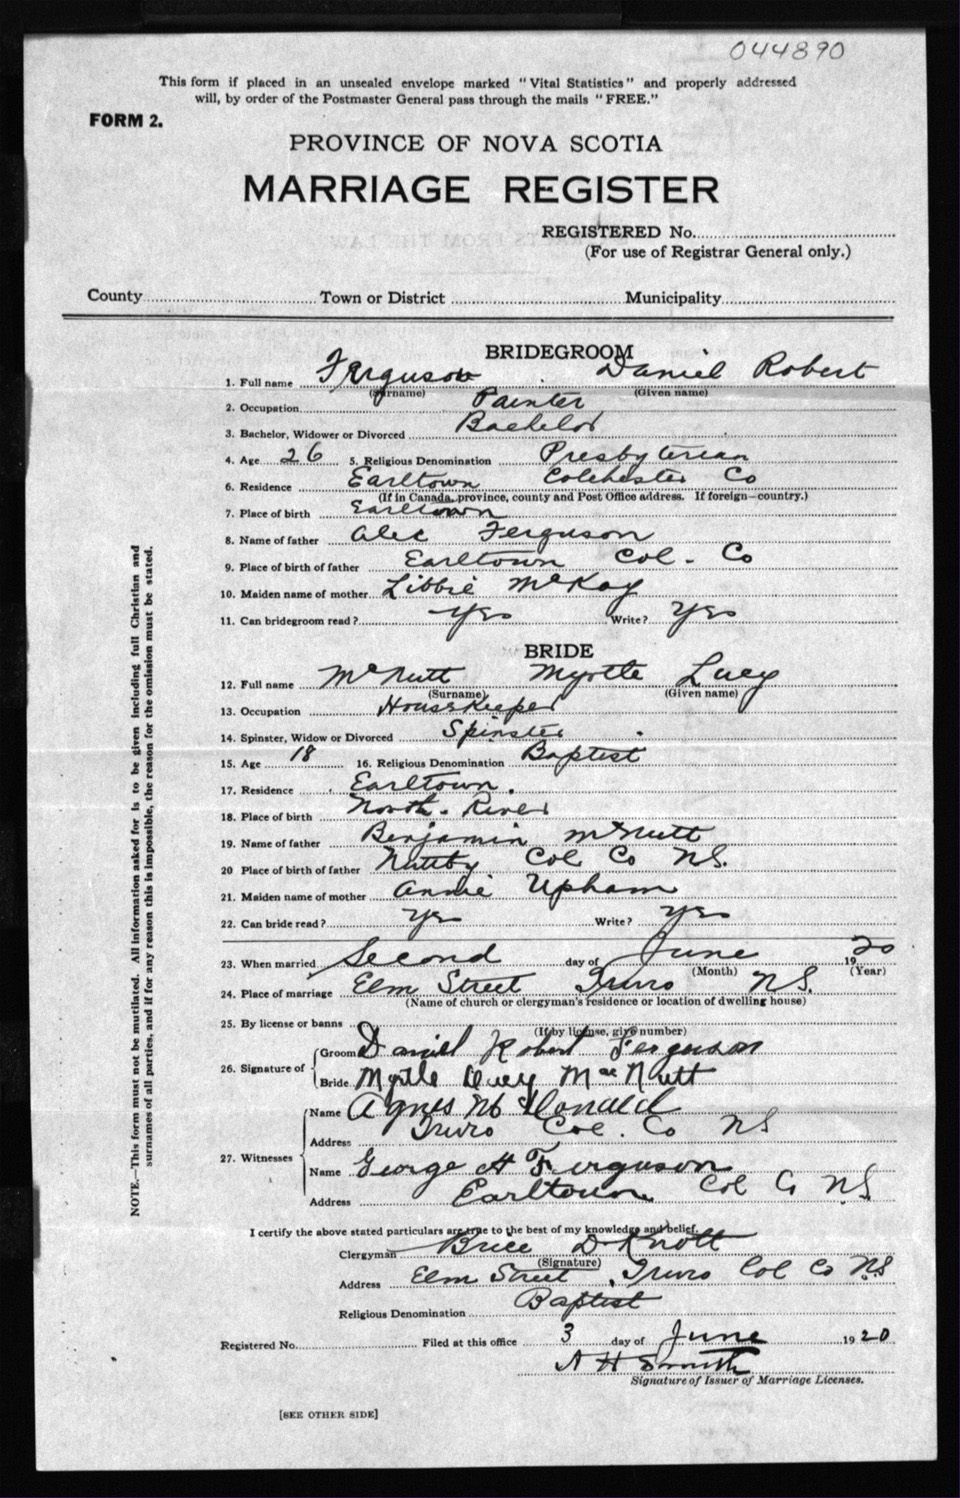 044890
This form if placed in an unsealed envelope marked "Vital Statistics" and properly addressed
will, by order of the Postmaster General pass through the mails "FREE."
FORM 2.
PROVINCE OF NOVA SCOTIA
MARRIAGE REGISTER
REGISTERED No.
(For use of Registrar General only.)
County Town or District Municipality
BRIDEGROOM
1. Full name Ferguson Daniel Robert
(Surname) (Given name)
2. Occupation Painter
3. Bachelor, Widower or Divorced Bachelor
4. Age 26 5. Religious Denomination Presbyterian
6. Residence Earltown Colchester Co
(If in Canada, province, county and Post Office address. If foreign—country.)
7. Place of birth Earltown
8. Name of father Alec Ferguson
9. Place of birth of father Earltown Col. Co
10. Maiden name of mother Libbie McKay
11. Can bridegroom read? Yes Write? Yes
BRIDE
12. Full name McNutt Myrtle Lucy
(Surname) (Given name)
13. Occupation HouseKeeper
14. Spinster, Widow or Divorced Spinster
15. Age 18 16. Religious Denomination Baptist
17. Residence Earltown.
18. Place of birth North River
19. Name of father Benjamin McNutt
20 Place of birth of father Nuttby Col Co NS.
21. Maiden name of mother Annie Upham
22. Can bride read? Yes Write? Yes
23. When married Second day of June 1920
(Month) (Year)
24. Place of marriage Elm Street Truro NS.
(Name of church or clergyman's residence or location of dwelling house)
25. By license or banns
(If by license, give number)
26. Signature of Groom Daniel Robert Ferguson
Bride Myrtle Lucy MacNutt
27. Witnesses Name Agnes McDonald
Address Truro Col. Co NS
Name George H Ferguson
Address Earltown Col Co N.S
I certify the above stated particulars are true to the best of my knowledge and belief.
Clergyman Brice D Knott
(Signature)
Address Elm Street, Truro Col Co N.S
Religious Denomination Baptist
Registered No. Filed at this office 3 day of June 1920
A H Smith
Signature of Issuer of Marriage Licenses.
[SEE OTHER SIDE]
NOTE.—This form must not be mutilated. All information asked for is to be given including full Christian and
surnames of all parties, and if for any reason this is impossible, the reason for the omission must be stated.